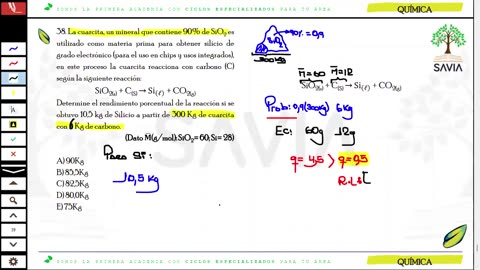 SOMOS LA PRIMERA ACADEMIA CON CICLOS ESPECIALIZADOS PARA TU ÁREA
QUÍMICA
38. La cuarcita, un mineral que contiene 90% de SiO₂, es
utilizado como materia prima para obtener silicio de
grado electrónico (para el uso en chips y usos integrados),
en este proceso la cuarcita reacciona con carbono (C)
según la siguiente reacción:
SiO₂(s) + C(s) → Si(ℓ) + CO₂(g)
Determine el rendimiento porcentual de la reacción si se
obtuvo 10,5 kg de Silicio a partir de 300 Kg de cuarcita
con 6 Kg de carbono.
(Dato M(g/mol): SiO₂= 60; Si= 28)
A) 90Kg
B) 85,5Kg
C) 82,5Kg
D) 80,0Kg
E) 75Kg
Para Si:
10,5 Kg
90% = 0,9
300Kg
M=60 M=12
SiO₂(s) + C(s) → Si(ℓ) + CO₂(g)
Prob: 0,9(300Kg) 6Kg
Ec: 60g 12g
q = 4,5 > q = 0,5
R.L
SAVIA
SAVIA
SOMOS LA PRIMERA ACADEMIA CON CICLOS ESPECIALIZADOS PARA TU ÁREA
QUÍMICA